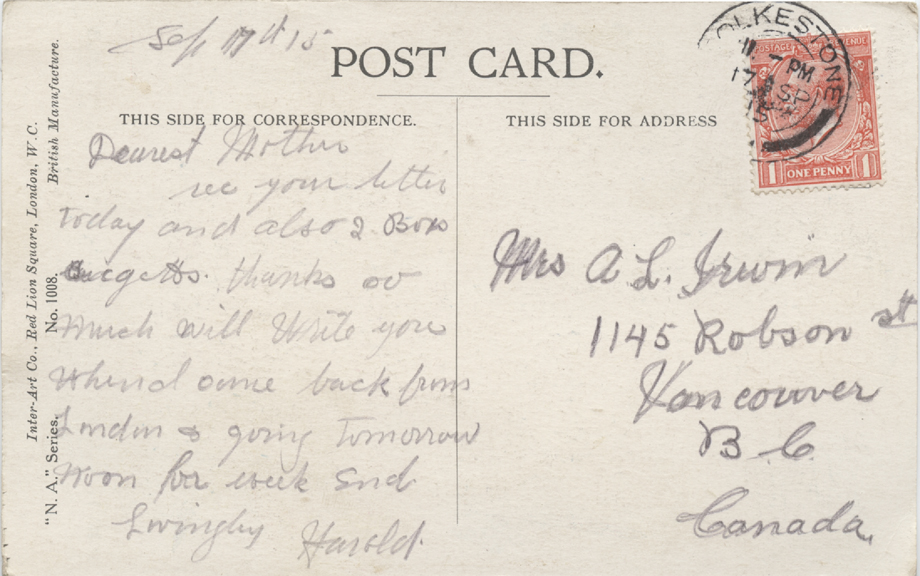 Sep 17th 15
POST CARD.
THIS SIDE FOR CORRESPONDENCE.
THIS SIDE FOR ADDRESS
FOLKESTONE
11 - PM
17 SP
15
POSTAGE REVENUE
1 ONE PENNY 1
Inter-Art Co., Red Lion Square, London, W.C.
British Manufacture.
"N. A." Series. No. 1008.
Dearest Mother
rec your letter
today and also 2 Box
thanks so
much will Write you
when I come back from
London & going Tomorrow
noon for week End
Lovingly
Harold.
Mrs A L. Irwin
1145 Robson st
Vancouver
B C
Canada,